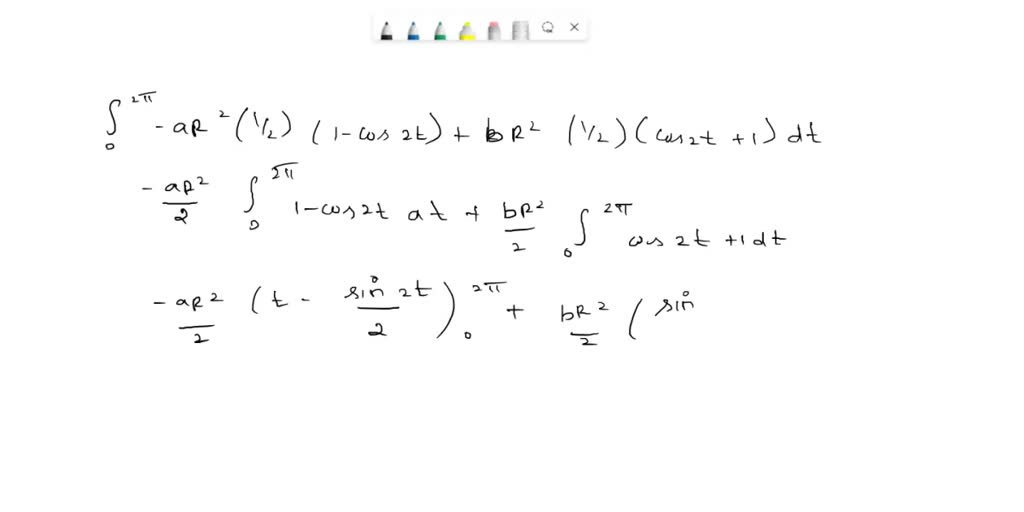 ∫₀^2π - aR² (1/2) (1 - cos 2t) + bR² (1/2) (cos 2t + 1) dt
- aR²/2 ∫₀^2π 1 - cos 2t dt + bR²/2 ∫₀^2π cos 2t + 1 dt
- aR²/2 (t - sin 2t/2)₀^2π + bR²/2 (sin